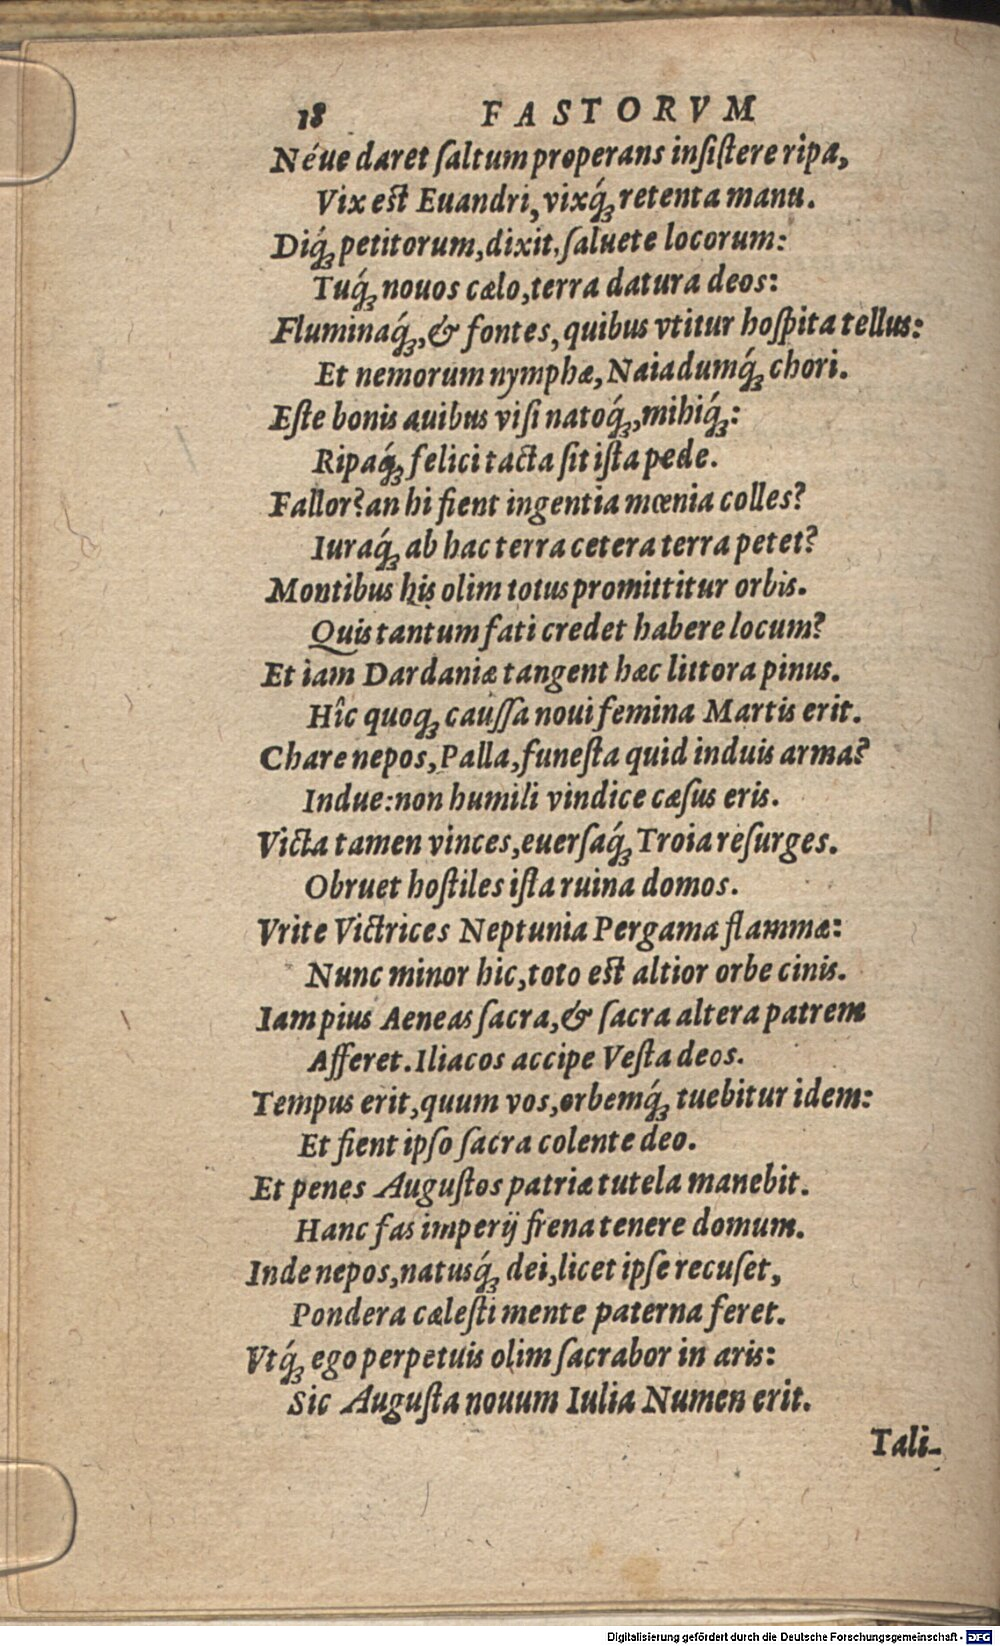 18 FASTORVM
Néue daret ſaltum properans inſiſtere ripa,
Vix eſt Euandri, vixq́ꝫ retenta manu.
Diq́ꝫ petitorum, dixit, ſaluete locorum:
Tuq́ꝫ nouos cælo, terra datura deos:
Fluminaq́ꝫ, & fontes, quibus vtitur hoſpita tellus:
Et nemorum nymphæ, Naiadumq́ꝫ chori.
Eſte bonis auibus viſi natoq́ꝫ, mihiq́ꝫ:
Ripaq́ꝫ felici tacta ſit iſta pede.
Fallor? an hi fient ingentia mœnia colles?
Iuraq́ꝫ ab hac terra cetera terra petet?
Montibus his olim totus promittitur orbis.
Quis tantum fati credet habere locum?
Et iam Dardaniæ tangent hæc littora pinus.
Hîc quoqꝫ cauſſa noui femina Martis erit.
Chare nepos, Palla, funeſta quid induis arma?
Indue: non humili vindice cæſus eris.
Victa tamen vinces, euerſaq́ꝫ Troia reſurges.
Obruet hoſtiles iſta ruina domos.
Vrite Victrices Neptunia Pergama flammæ:
Nunc minor hic, toto eſt altior orbe cinis.
Iam pius Aeneas ſacra, & ſacra altera patrem
Afferet. Iliacos accipe Veſta deos.
Tempus erit, quum vos, orbemq́ꝫ tuebitur idem:
Et fient ipſo ſacra colente deo.
Et penes Auguſtos patriæ tutela manebit.
Hanc fas imperij frena tenere domum.
Inde nepos, natusq́ꝫ dei, licet ipſe recuſet,
Pondera cæleſti mente paterna feret.
Vtq́ꝫ ego perpetuis olim ſacrabor in aris:
Sic Auguſta nouum Iulia Numen erit.
Tali-
Digitalisierung gefördert durch die Deutsche Forschungsgemeinschaft - DFG